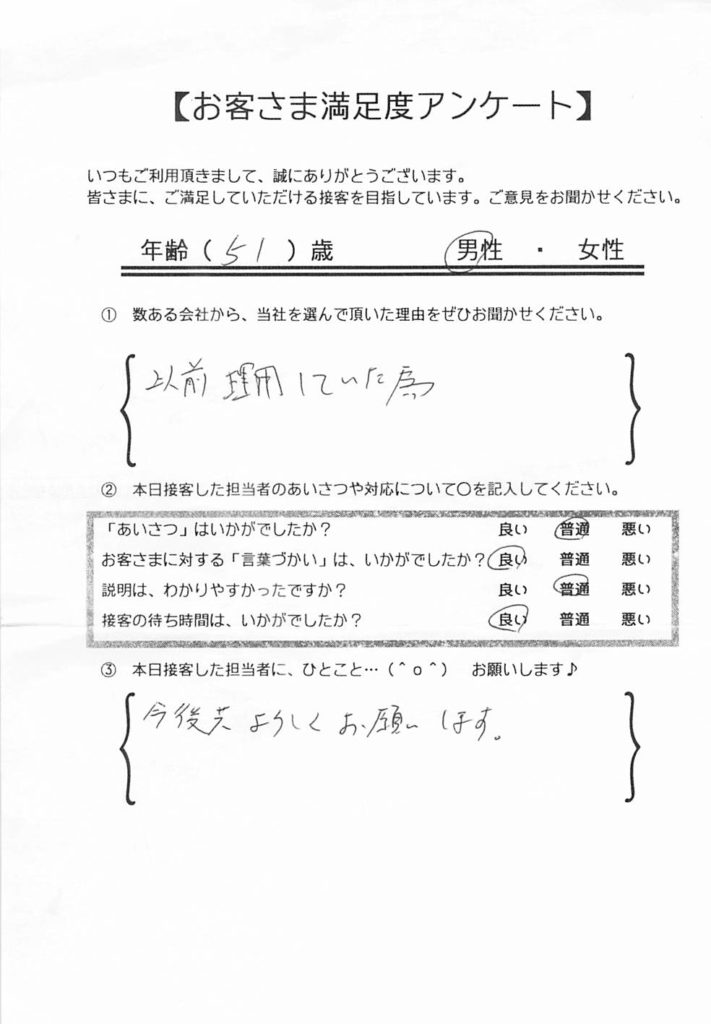 【お客さま満足度アンケート】
いつもご利用頂きまして、誠にありがとうございます。
皆さまに、ご満足していただける接客を目指しています。ご意見をお聞かせください。
年齢(51)歳 男性 ・ 女性
① 数ある会社から、当社を選んで頂いた理由をぜひお聞かせください。
以前 理用していた為
② 本日接客した担当者のあいさつや対応について〇を記入してください。
「あいさつ」はいかがでしたか? 良い 普通 悪い
お客さまに対する「言葉づかい」は、いかがでしたか? 良い 普通 悪い
説明は、わかりやすかったですか? 良い 普通 悪い
接客の待ち時間は、いかがでしたか? 良い 普通 悪い
③ 本日接客した担当者に、ひとこと…(^o^) お願いします♪
今後共 よろしく お願い します。